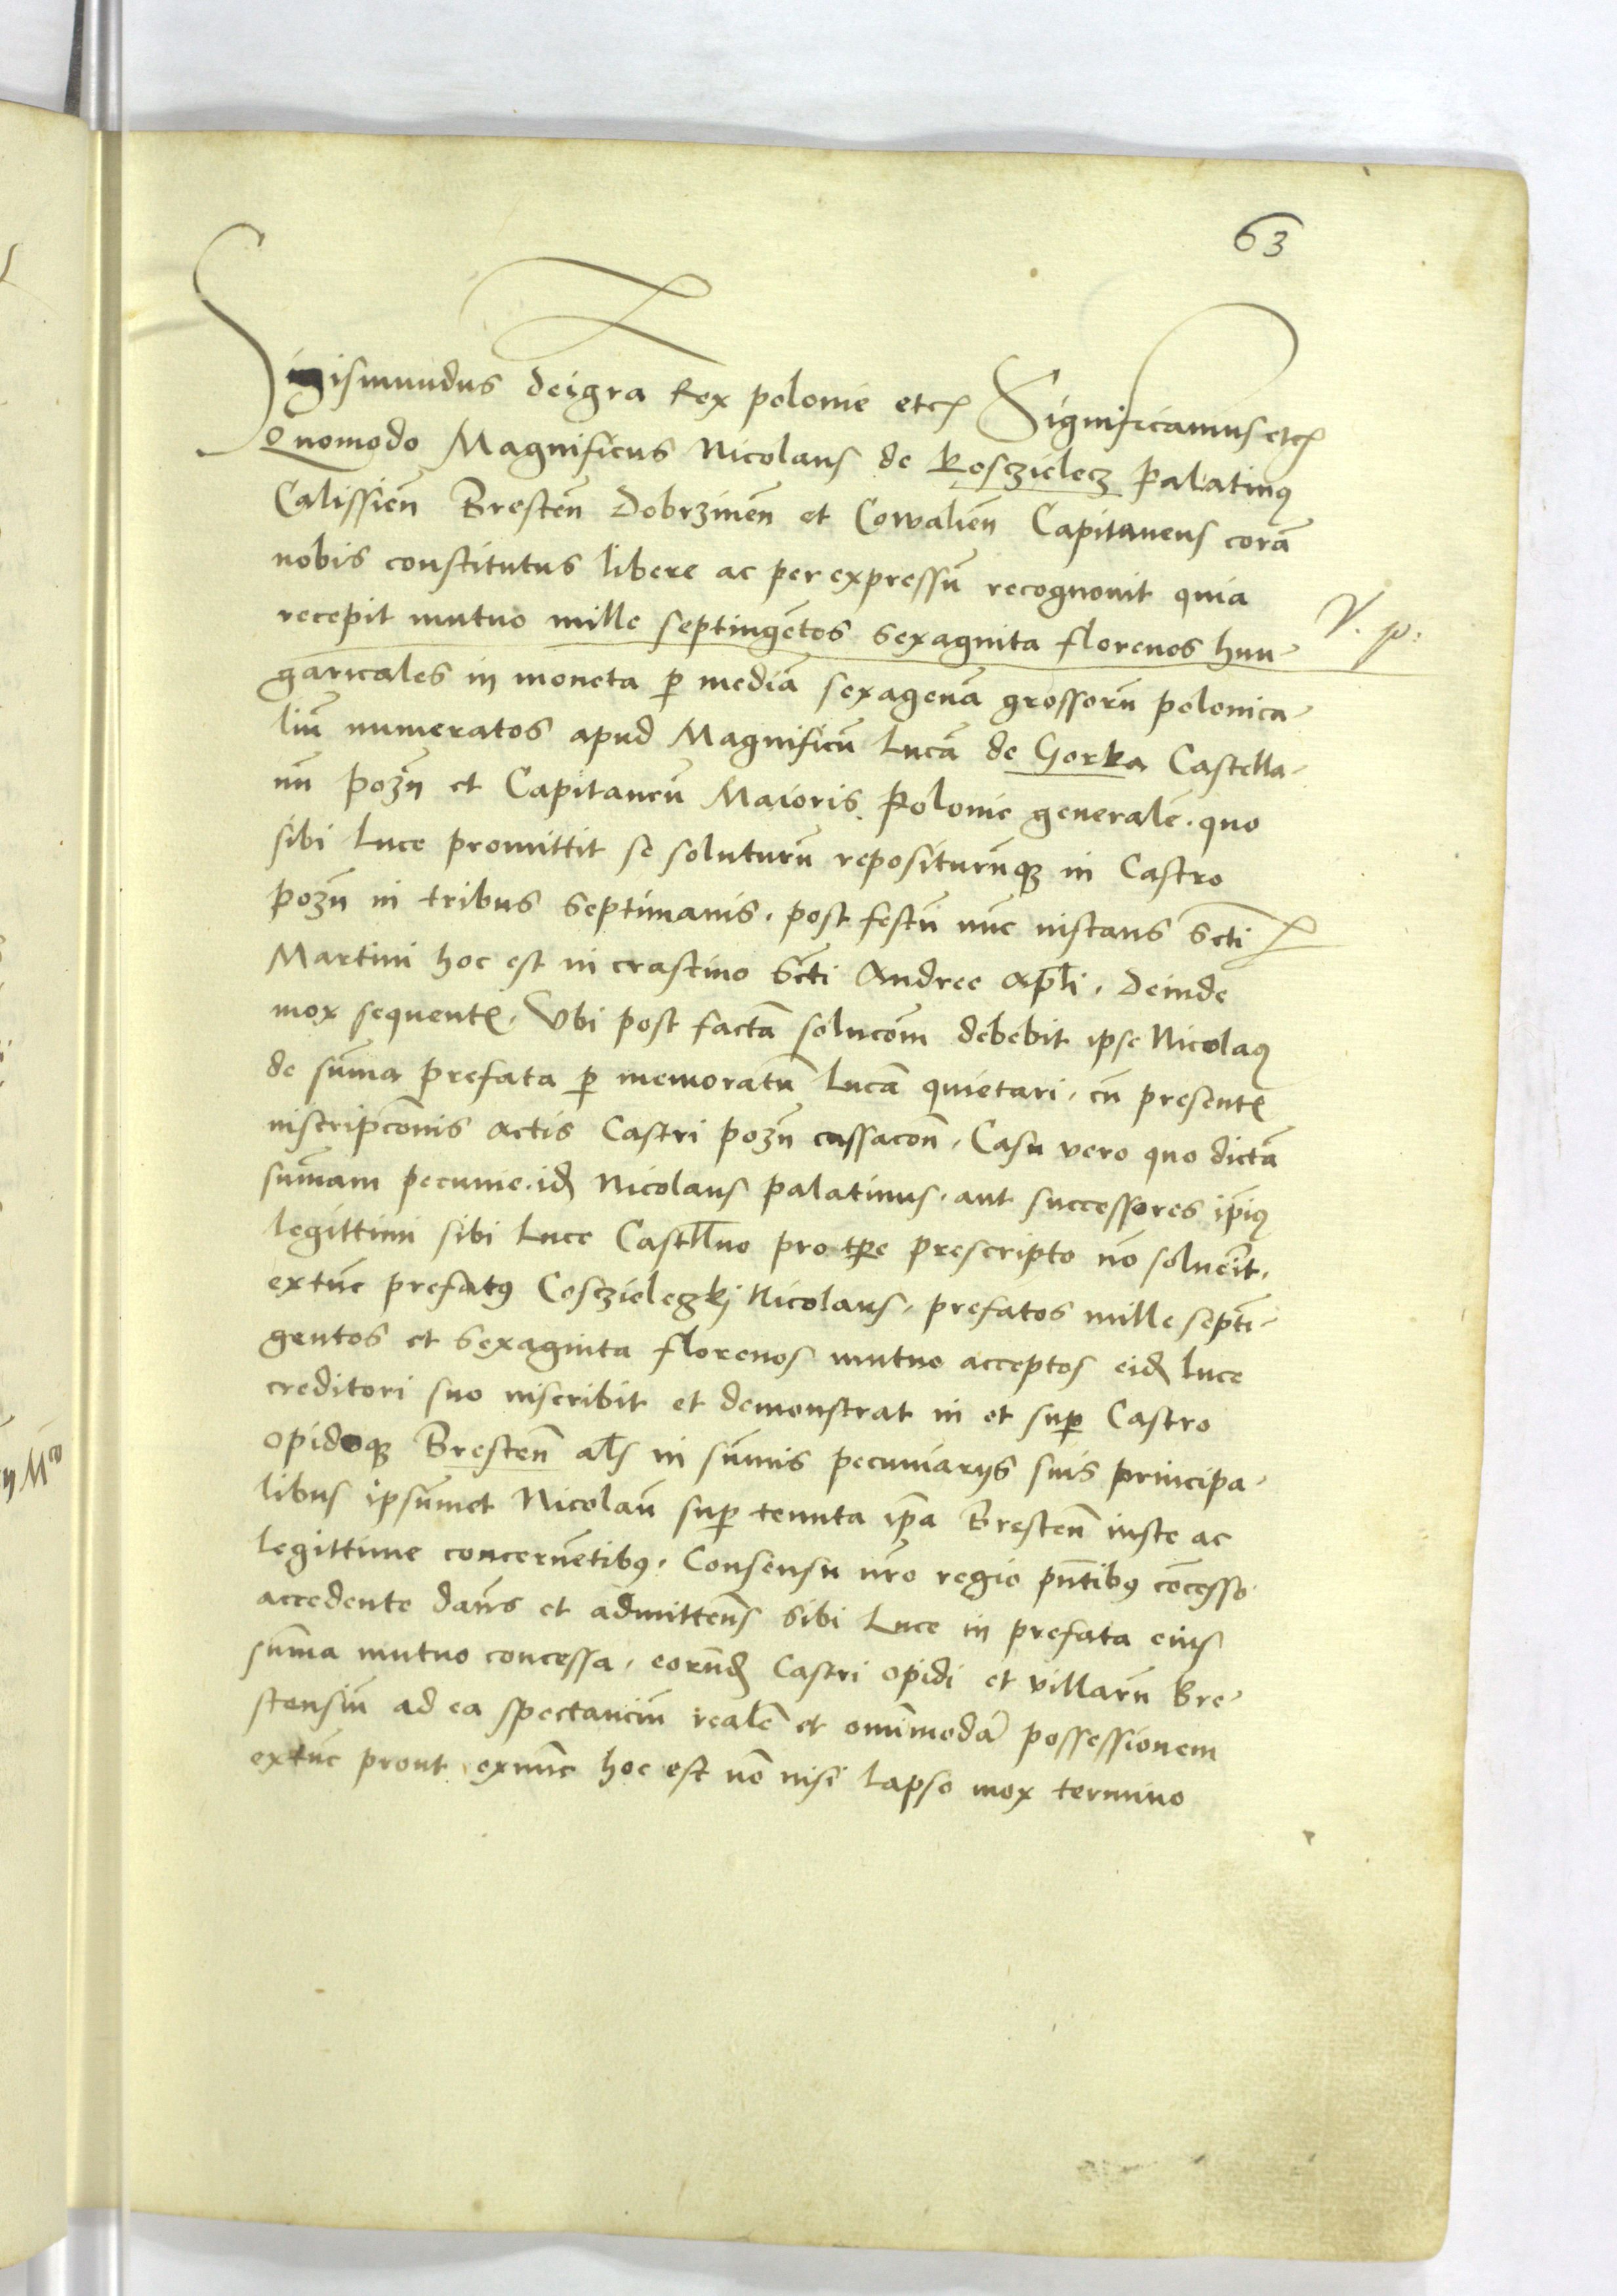 63
Sigismundus deigra Rex polonie etc Significamus etc
Quomodo Magnificus Nicolaus de Kosczielecz palatinus
Calissien̄ Bresten̄ Dobrzinen̄ et Cowalien̄ Capitaneus corā
nobis constitutus libere ac per expressū recognouit quia
recepit mutuo mille septingētos sexaginta florenos hun-
V. p:
garicales in moneta p mediā sexagenā grossorū polonica-
liū numeratos apud Magnificū Lucā de Gorka Castella-
nū pozn̄ et Capitaneū Maioris Polonie generalē. quo
sibi Luce promittit se soluturū repositurūq3 in Castro
pozn̄ in tribus septimanis. post festū nūc instans Scti
Martini hoc est in crastino Scti Andree Apl̄i. Deinde
mox sequent̄. Vbi post factā solucōm debebit ipse Nicolaus
de sūma prefata p memoratū Lucā quietari. cū present̄
inscripcōnis actis Castri pozn̄ cassacōn. Casu vero quo dictā
sūmam pecunie. id̄ Nicolaus palatinus. aut successores ip̄ius
legittimi sibi Luce Castll̄no pro tp̄e prescripto nō soluerīt.
extūc prefatus Cosczieleczkj Nicolaus. prefatos mille septī-
gentos et sexaginta florenos mutuo acceptos eid̄ Luce
creditori suo inscribit et demonstrat in et sup Castro
opidoq3 Bresten̄ als in sūmis pecuniarijs suis principa-
libus ipsūmet Nicolaū sup tenuta ip̄a Bresten̄ iuste ac
legittime concernētibus. Consensu nr̄o regio pn̄tibus cōcesso
accedente dan̄s et admitten̄s sibi Luce in prefata eius
sūma mutuo concessa. eorūd̄ Castri opidi et villarū Bre-
stensiū ad ea spectanciū realē et omnimodā possessionem
extūc prout exnūc hoc est nō nisi lapso mox termino